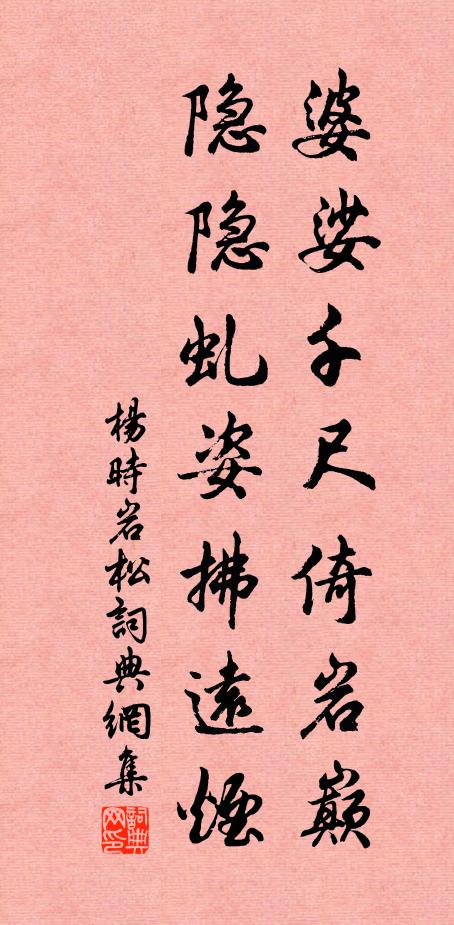 婆娑千尺倚岩巅
隐隐虬姿拂遠煙
楊時岩松詞典網集
詞典网印